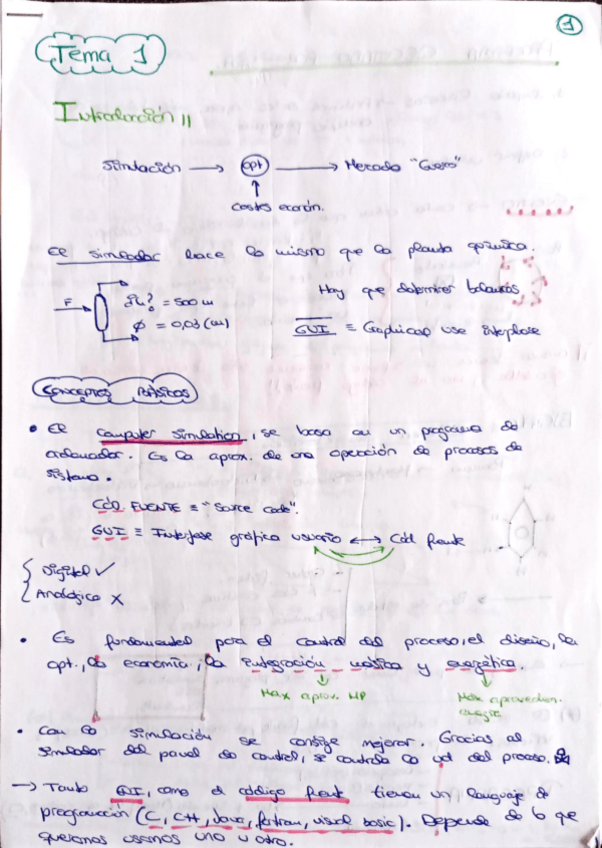 1
Tema 1
Introducción
Simulación → opt → Mercado "Gross"
Costes econón.
El simulador hace lo mismo que la planta química.
F
¿h? = 500 m
Hay que determinar balances
φ = 0,03 (m)
GUI = Graphicad use interphase
CONCEPTOS BÁSICOS
• El computer simulation, se basa en un programa de
ordenador. Es la aprox. de una operación de procesos de
sistema.
Cód FUENTE ≡ "Source Code".
GUI ≡ Interfase gráfica usuario ↔ Cód fuente
Digital ✓
Analógico X
• Es fundamental para el control del proceso, el diseño, la
opt., la economía, la integración másica y energética.
Max aprov. MP
Max aprovechan. energía
• Con la simulación se consigue mejorar. Gracias al
simulador del panel de control, se controla la del proceso.
→ Tanto GUI, como el código fuente tienen un lenguaje de
programación (C, C++, Java, fortran, visual basic). Depende de lo que
queramos usamos uno u otro.